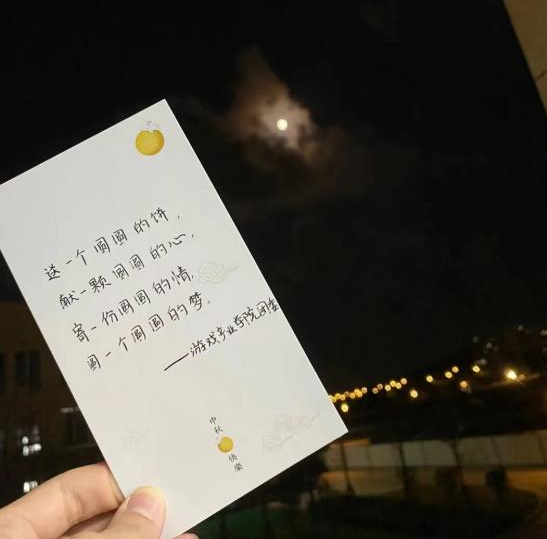 送一个圆圆的饼，
献一颗圆圆的心，
寄一份圆圆的情，
圆一个圆圆的梦。
——游戏产业学院团委
中秋
快樂